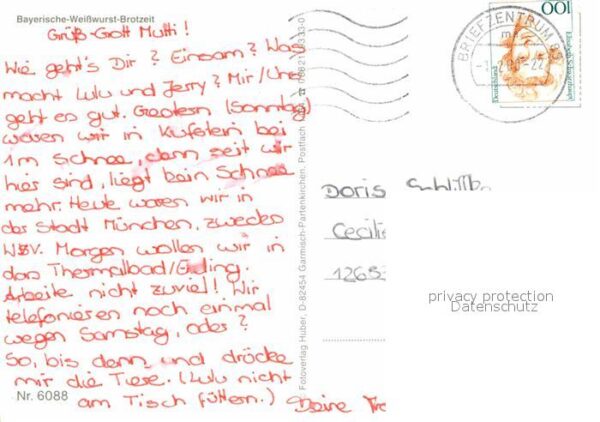 Bayerische-Weißwurst-Brotzeit
Grüß-Gott Mutti!
Wie geht's Dir? Einsam? Was
macht Lulu und Jerry? Mir/Uns
geht es gut. Gestern (Sonntag)
waren wir in Kufstein bei
1m Schnee, denn seit wir
hier sind, liegt kein Schnee
mehr. Heute waren wir in
der Stadt München, zwecks
WSV. Morgen wollen wir in
das Thermalbad/Erding.
Arbeite nicht zuviel! Wir
telefonieren noch einmal
wegen Samstag, oder?
So, bis dann, und drücke
mir die Tiere. (Lulu nicht
am Tisch füttern.) Deine
Nr. 6088
Fotoverlag Huber, D-82454 Garmisch-Partenkirchen, Postfach
BRIEFZENTRUM
100
Deutschland
Elisabeth Schwarzhaupt
Doris
privacy protection
Datenschutz